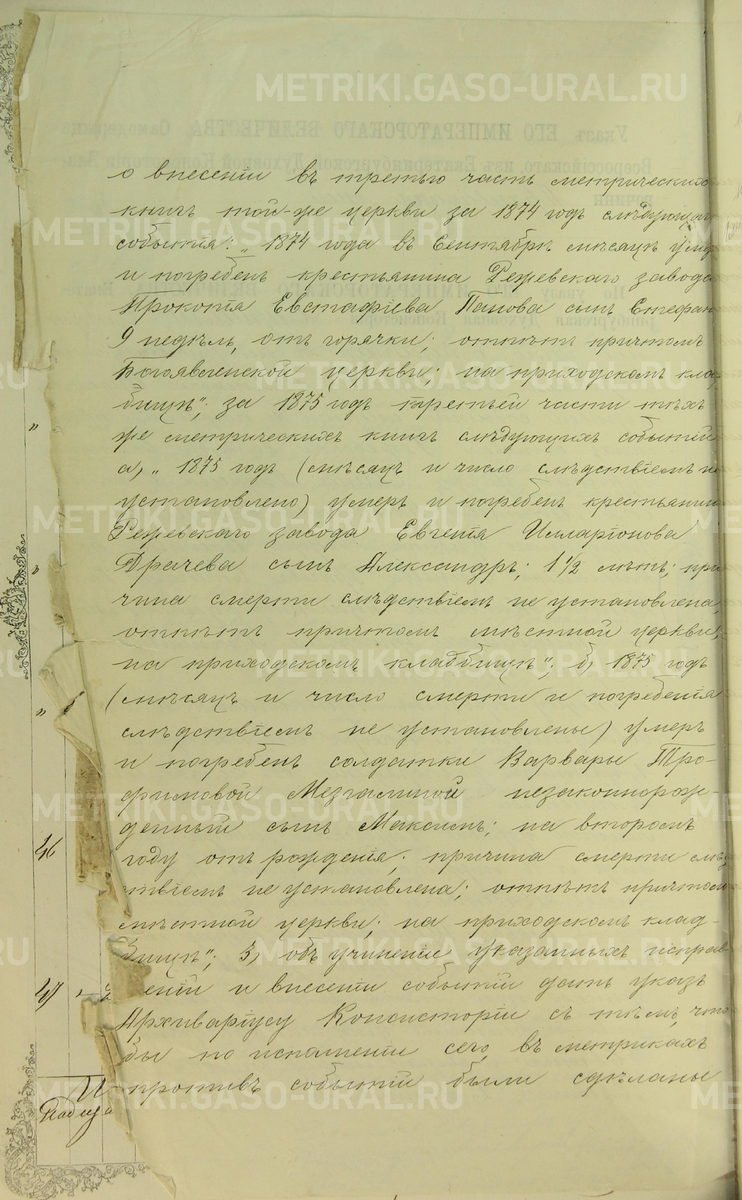 о внесеніи въ третью часть метрическихъ
книгъ той-же церкви за 1874 годъ слѣдующаго
событія: „1874 года въ Сентябрѣ мѣсяцѣ умер
и погребенъ крестьянина Режевскаго завода
Прокопія Евстафіева Панова сынъ Стефанъ
9 недѣль, отъ горячки; отпѣтъ причтомъ
Богоявленской церкви; на приходскомъ клад
бищѣ"; за 1875 годъ третьей части тѣхъ
же метрическихъ книгъ слѣдующихъ событій
а, „1875 годъ (мѣсяцъ и число слѣдствіемъ не
установлено) умеръ и погребенъ крестьянина
Режевскаго завода Евгенія Илларіонова
Драчева сынъ Александръ; 1 1/2 лѣтъ; при
чина смерти слѣдствіемъ не установлена,
отпѣтъ причтомъ мѣстной церкви;
на приходскомъ кладбищѣ"; б, 1875 годъ
(мѣсяцъ и число смерти и погребенія
слѣдствіемъ не установлены) умеръ
и погребенъ солдатки Варвары Тро-
фимовой незаконнорож-
денный сынъ Максимъ; на второмъ
году отъ рожденія; причина смерти слѣд
ствіемъ не установлена; отпѣтъ причтомъ
мѣстной церкви; на приходскомъ клад-
бищѣ"; 3, объ учиненіи указанныхъ исправ
леній и внесеніи событій дать указъ
Архиваріусу Консисторіи съ тѣмъ, что
бы по исполненіи сего, въ метрикахъ
противъ событій были сдѣланы
46
47
METRIKI.GASO-URAL.RU